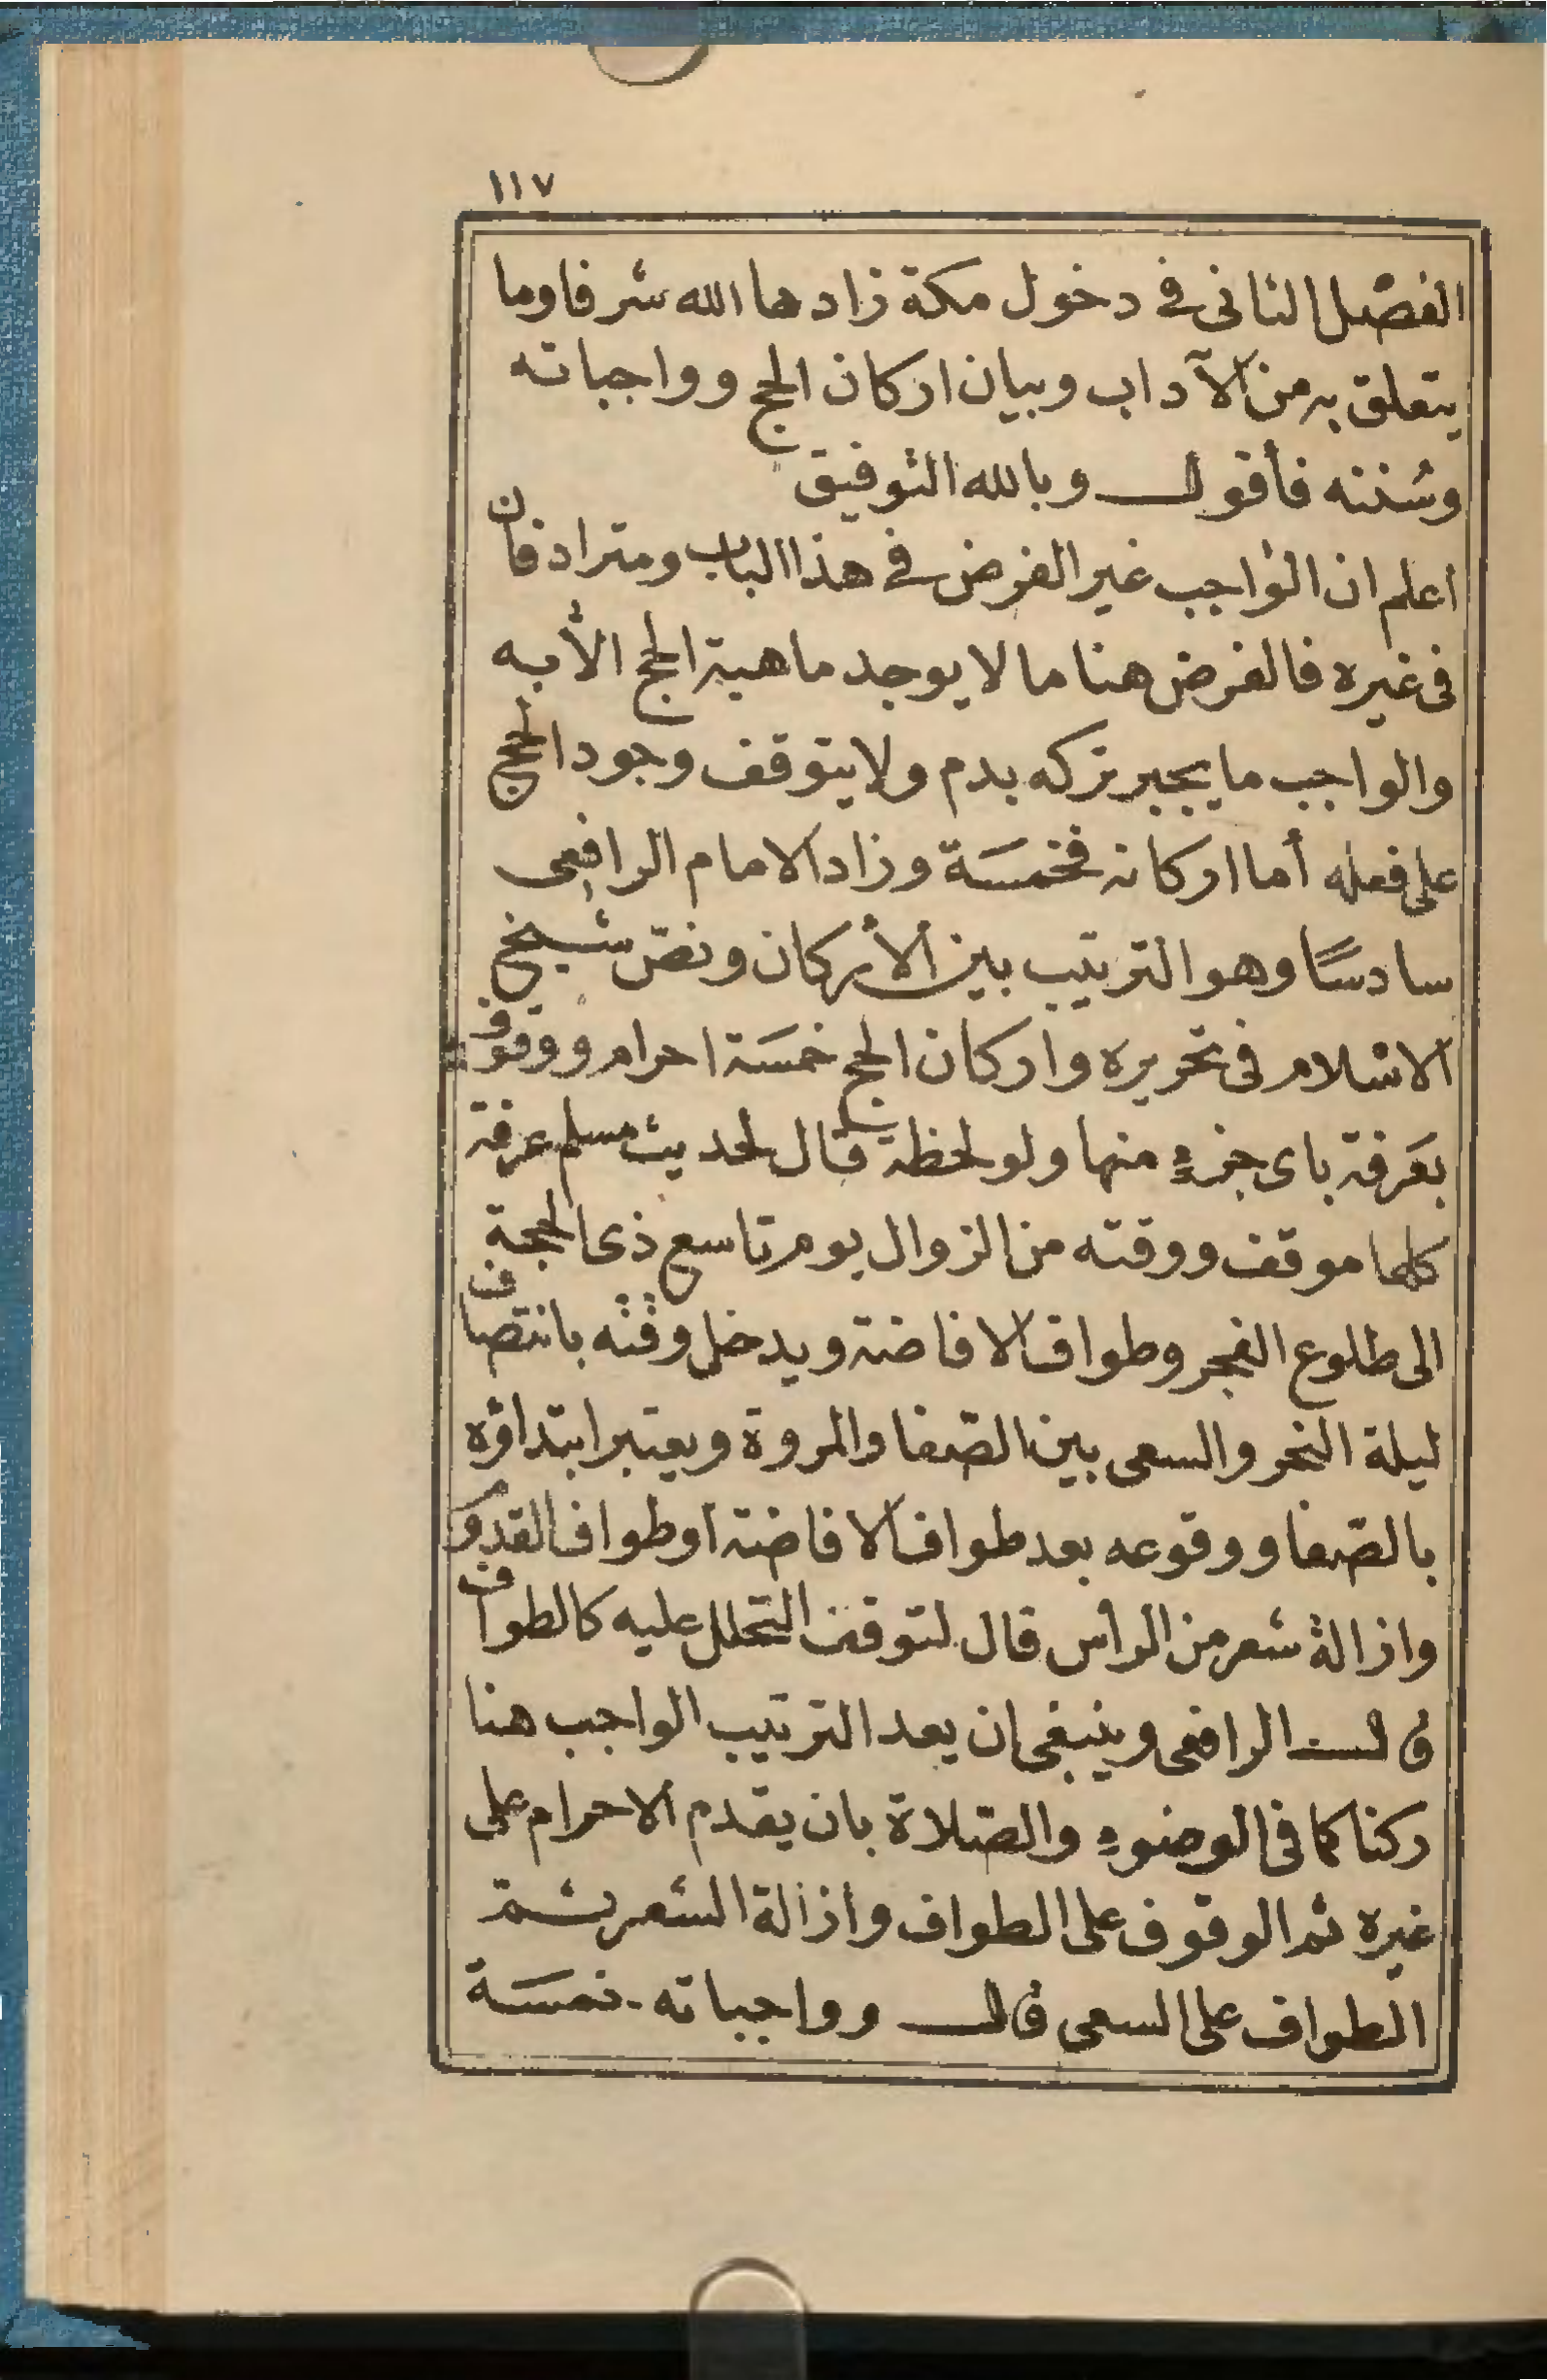 ١١٧
الفصل الثانى في دخول مكة زادها الله شرفا وما
يتعلق به من الآداب وبيان اركان الحج وواجباته
وسُننه فأقول وبالله التوفيق
اعلم ان الواجب غير الفرض في هذا الباب ومترادفان
فى غيره فالفرض هنا ما لا يوجد ماهية الحج الأبه
والواجب ما يجبر تركه بدم ولا يتوقف وجود الحج
على فعله أما اركانه فخمسَة وزاد الامام الرافعى
سادسًا وهو الترتيب بين الأركان ونصّ شيخ
الاسلام فى تحريره واركان الحج خمسَة احرام ووقوف
بعَرفة باى جزءٍ منها ولو لحظة قال لحديث مسلم عرفة
كلها موقف ووقته من الزوال يوم تاسع ذى الحجة
الى طلوع الفجر وطواف الافاضة ويدخل وقته بانتصاف
ليلة النحر والسعى بين الصّفا والمروة ويعتبر ابتداؤه
بالصّفا ووقوعه بعد طواف الافاضة او طواف القدوم
وازالة شعر من الرأس قال لتوقف التحلل عليه كالطواف
قال الرافعى وينبغى ان يعد الترتيب الواجب هنا
ركنا كما فى الوضوءِ والصّلاة بان يقدم الاحرام على
غيره ثم الوقوف على الطواف وازالة الشعر ثمّ
الطواف على السعى قال وواجباته خمسَة